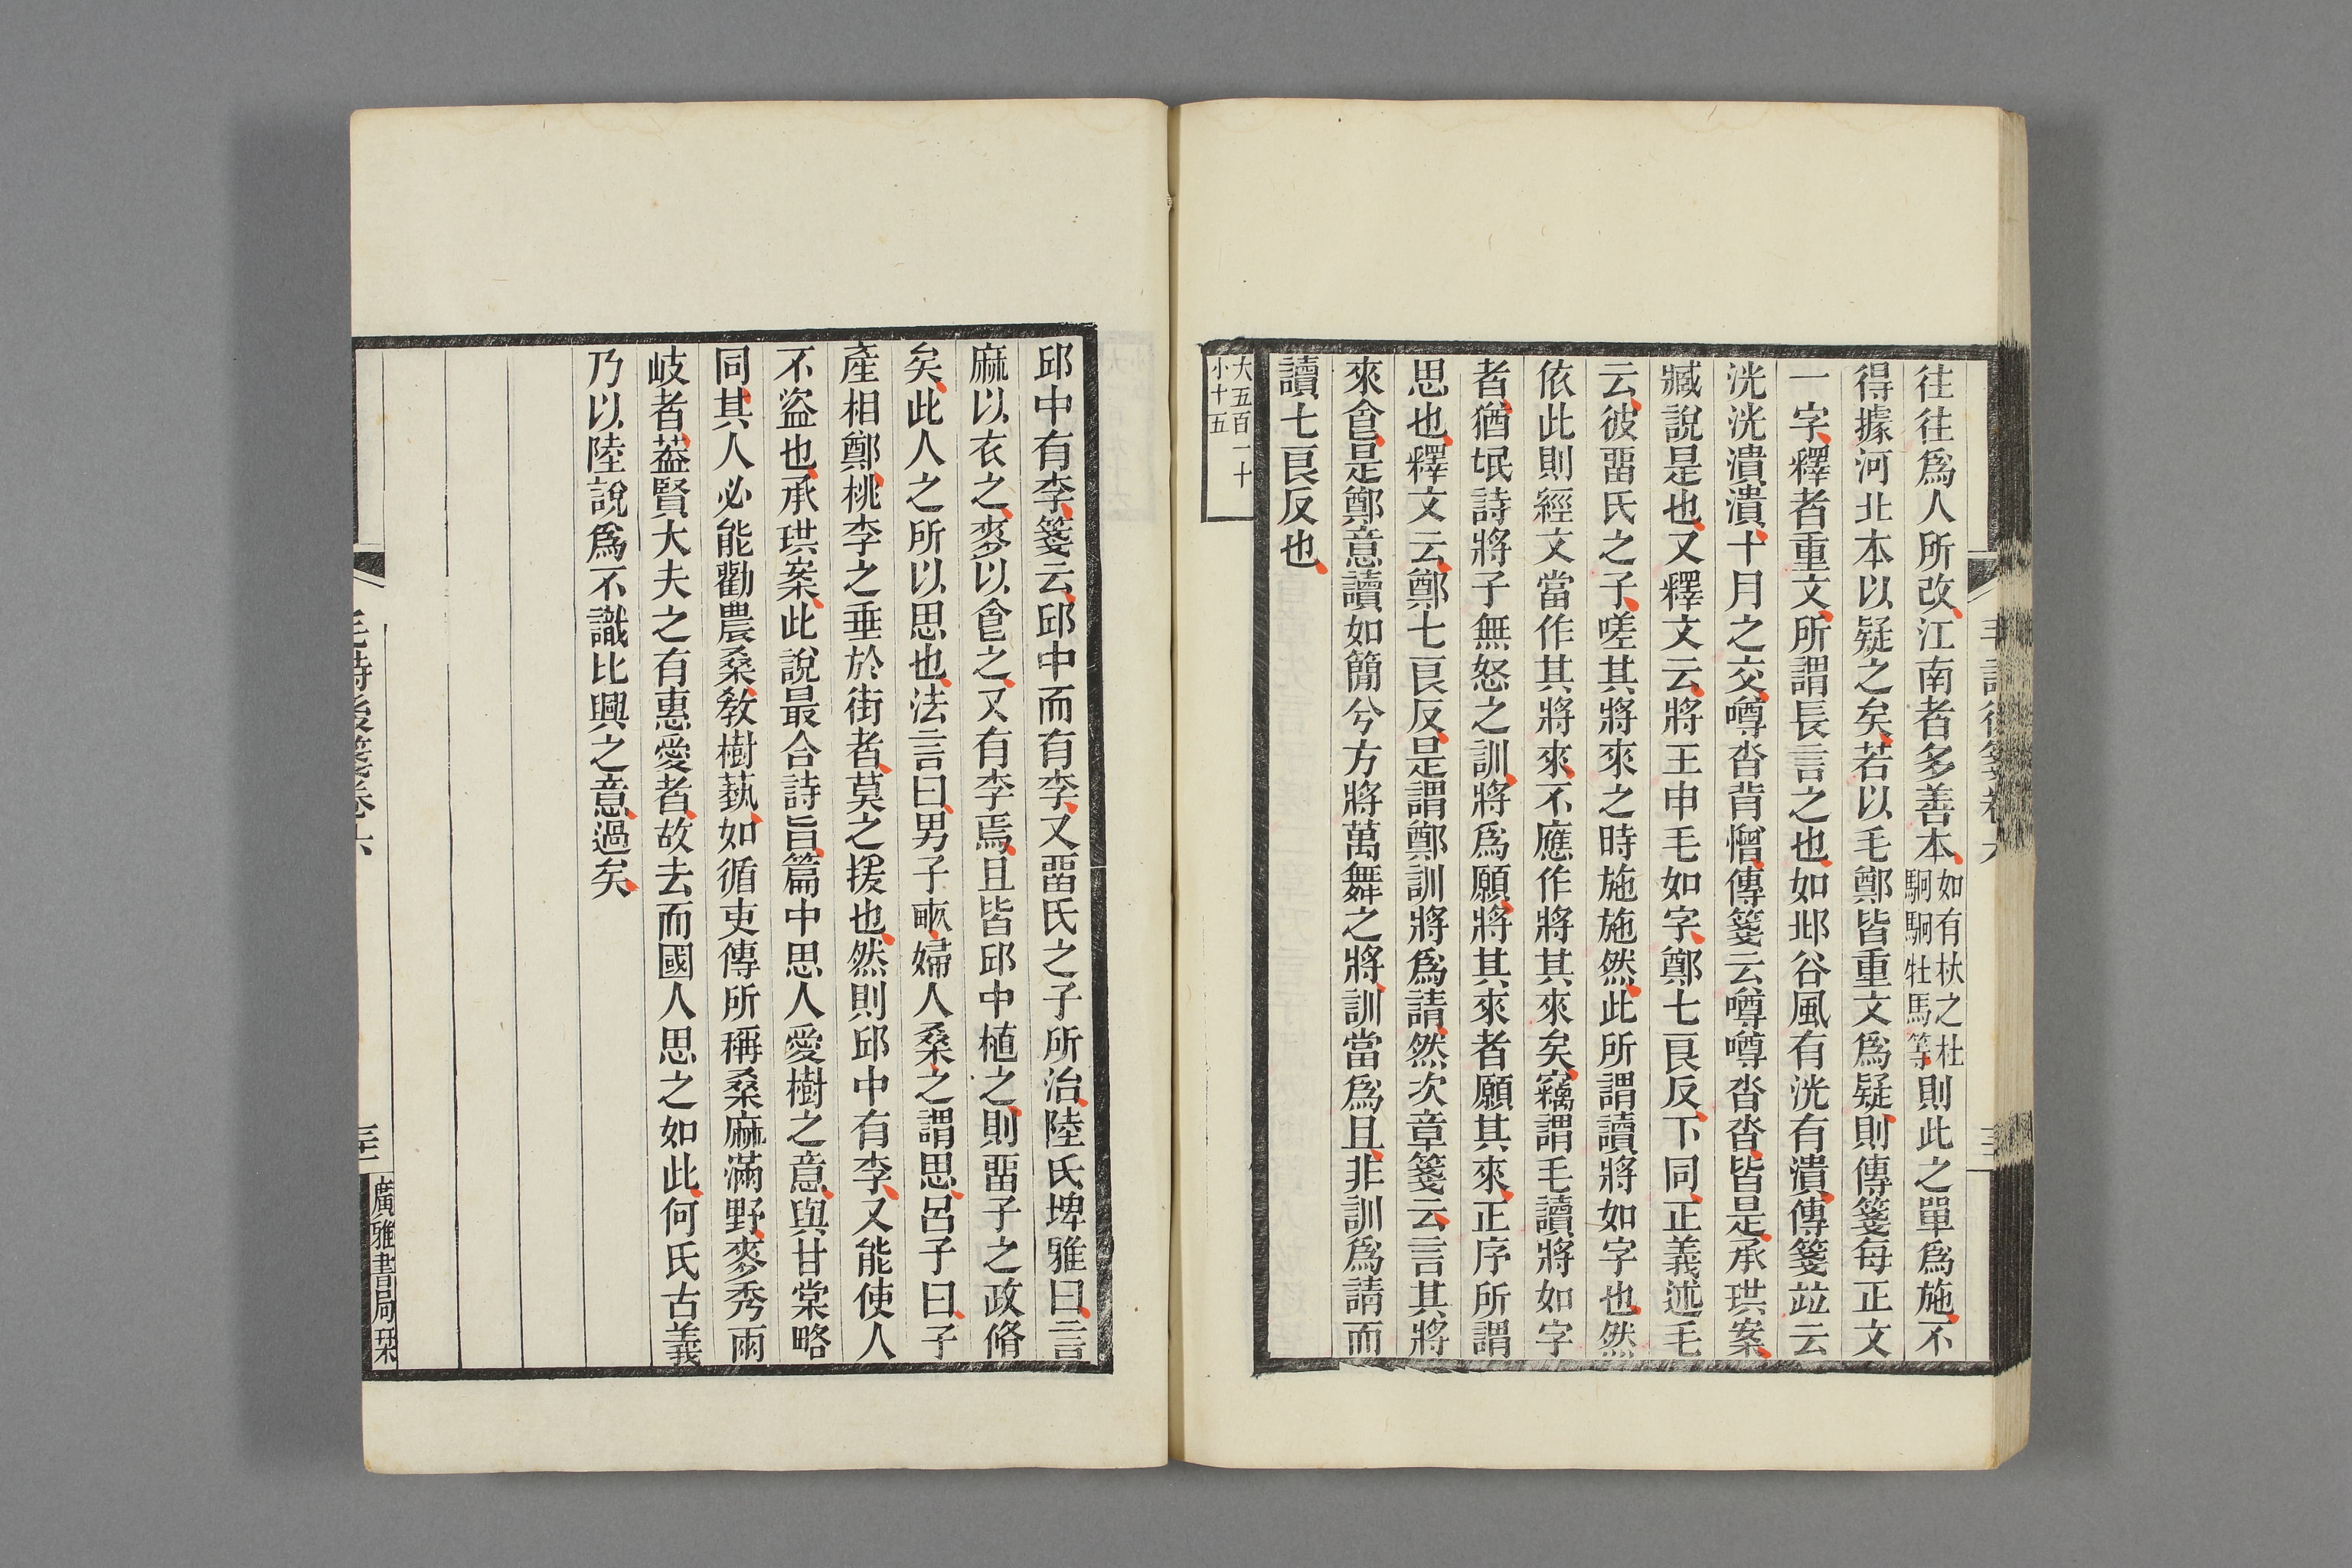 往往爲人所改江南者多善本如有杕之杜駉駉牡馬等則此之單爲施不
得據河北本以疑之矣若以毛鄭皆重文爲疑則傳箋每正文
一字釋者重文所謂長言之也如邶谷風有洸有潰傳箋竝云
洸洸潰潰十月之交噂沓背憎傳箋云噂噂沓沓皆是承珙案
臧說是也又釋文云將王申毛如字鄭七良反下同正義述毛
云彼畱氏之子嗟其將來之時施施然此所謂讀將如字也然
依此則經文當作其將來不應作將其來矣竊謂毛讀將如字
者猶氓詩將子無怒之訓將爲願將其來者願其來正序所謂
思也釋文云鄭七良反是謂鄭訓將爲請然次章箋云言其將
來食是鄭意讀如簡兮方將萬舞之將訓當爲且非訓爲請而
讀七良反也
大五百一十
小十五
邱中有李箋云邱中而有李又畱氏之子所治陸氏埤雅曰言
麻以衣之麥以食之又有李焉且皆邱中植之則畱子之政脩
矣此人之所以思也法言曰男子畝婦人桑之謂思呂子曰子
產相鄭桃李之垂於街者莫之援也然則邱中有李又能使人
不盜也承珙案此說最合詩旨篇中思人愛樹之意與甘棠略
同其人必能勸農桑敎樹蓺如循吏傳所稱桑麻滿野麥秀兩
岐者葢賢大夫之有惠愛者故去而國人思之如此何氏古義
乃以陸說爲不識比興之意過矣
毛詩後箋卷六
廣雅書局栞